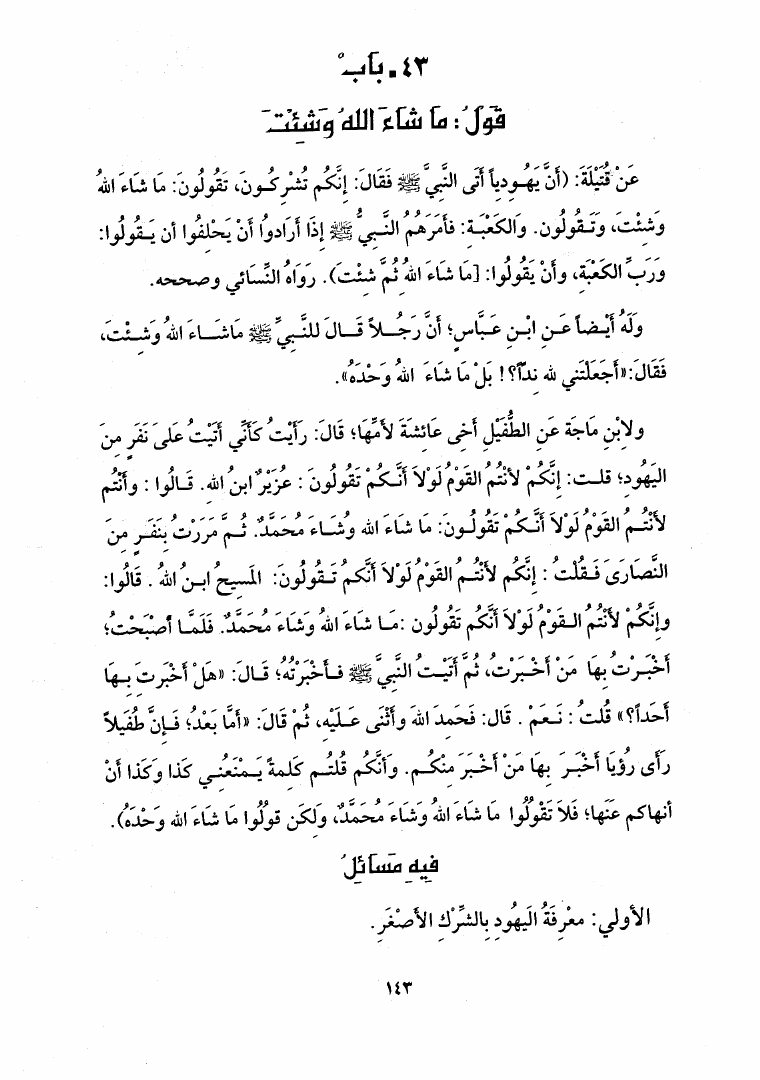 ٤٣. بابْ
قَولُ: مَا شَاءَ اللهُ وَشَئِتَ
عَنْ قُتَيْلَةَ: (أَنَّ يَهُودياً أَتَى النَّبِيَّ ﷺ فَقَالَ: إِنَّكُم تُشْرِكُونَ، تَقُولُونَ: مَا شَاءَ اللهُ
وَشِئْتَ، وَتَقُولُون. وَالكَعْبَة: فأَمَرَهُمُ النَّبيُّ ﷺ إِذَا أَرَادوُا أَنْ يَحْلِفُوا أن يَقُولُوا:
وَرَبِّ الكَعْبَة، وَأَنْ يَقُولُوا: [مَا شَاءَ اللهُ ثُمَّ شئتَ). رَوَاهُ النِّسَائي وصححه.
وَلَهُ أَيْضاً عَنِ ابْنِ عَبَّاسٍ؛ أَنَّ رَجُلاً قَالَ للنَّبِيِّ ﷺ مَاشَاءَ اللهُ وَشِئْتَ،
فَقَالَ:«أَجَعَلْتَني لله نِداً؟! بَلْ مَا شَاءَ اللهُ وَحْدَهُ».
ولابْنِ مَاجَة عَنِ الطُّفَيْلِ أَخِى عَائشَةَ لأُمِّهَا؛ قَالَ: رَأَيْتُ كَأَنِّي أَتَيْتُ عَلىَ نَفَرٍ مِنَ
اليَهُودِ؛ قلت: إِنَّكُمْ لأَنْتُمُ القَوْمُ لَوْلاَ أَنَّكُمْ تَقُولُونَ: عُزَيْرٌ ابنُ الله. قَالُوا: وأَنْتُم
لأَنْتُمُ القَوْمُ لَوْلاَ أَنَّكُمْ تَقُولُونَ: مَا شَاءَ الله وشَاءَ مُحَمَّدٌ. ثُمَّ مَرَرْتُ بِنَفَرٍ مِنَ
النَّصَارَى فَقُلْتُ: إِنَّكُم لأَنْتُمُ القَوْمُ لَوْلاَ أَنَّكُم تَقُولُونَ: المَسِيحُ ابنُ اللهُ. قَالُوا:
وإِنَّكُمْ لأَنْتُمُ القَوْمُ لَوْلاَ أَنَّكُم تَقُولُون :مَا شَاءَ اللهُ وَشَاءَ مُحَمَّدٌ. فَلَمَّا أصْبَحْتُ؛
أَخْبَرْتُ بِهَا مَنْ أَخْبَرْتُ، ثُمَّ أَتَيْتُ النَّبيَّ ﷺ فأَخْبَرْتُهُ؛ قَالَ: «هَلْ أَخْبَرتَ بِهَا
أَحَداً؟» قُلتُ: نَعَمْ. قال: فَحَمِدَ اللهَ وأَثْنَى عَلَيْه، ثُمْ قَالَ: «أَمَّا بَعْدُ؛ فَإِنَّ طُفَيلاً
رَأَى رُؤيَا أَخْبَرَ بِهَا مَنْ أَخْبَرَ مِنْكُم. وَأَنَّكُم قُلتُم كَلِمةً يَمْنَعُنِي كَذَا وَكَذَا أَنْ
أنهاكم عَنهَا؛ فَلاَ تَقْولُوا مَا شَاءَ اللهُ وَشَاءَ مُحَمَّدٌ، وَلَكِن قولُوا مَا شَاءَ الله وَحْدَهُ).
فيِهِ مَسَائِلُ
الأولي: معْرِفَةُ اليَهُودِ بِالشِّرْكِ الأَصْغَرِ.
١٤٣